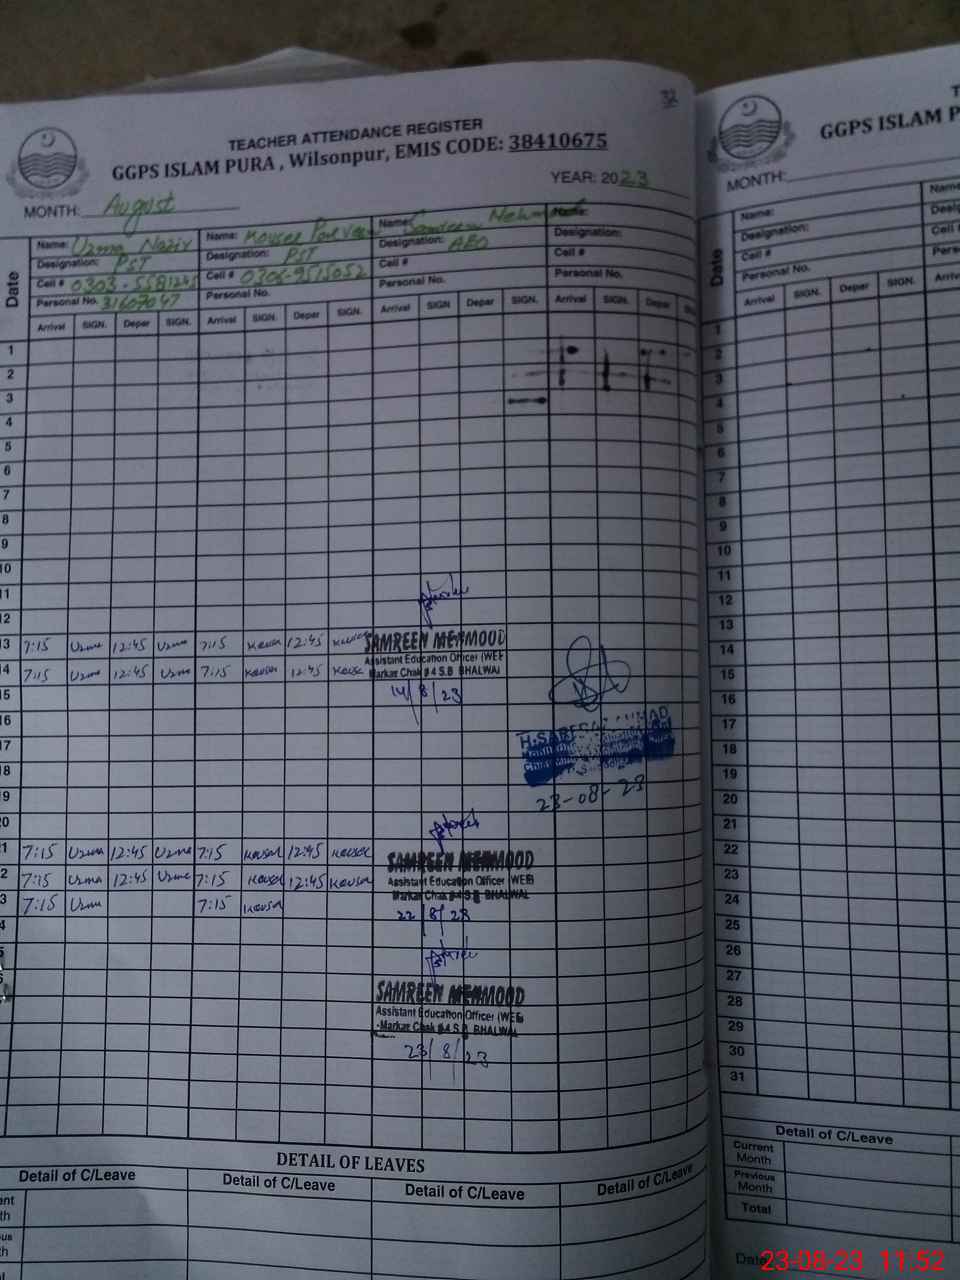 32
TEACHER ATTENDANCE REGISTER
GGPS ISLAM PURA , Wilsonpur, EMIS CODE: 38410675
MONTH: August YEAR: 2023
Name: Uzma Nazir Name: Kousar Parveen Name: Samreen Mehmood Name:
Designation: PST Designation: PST Designation: AEO Designation:
Cell # 0303-5581245 Cell # 0306-9515052 Cell # Cell #
Personal No. 31607047 Personal No. Personal No. Personal No.
Date
Arrival SIGN. Depar SIGN. Arrival SIGN. Depar SIGN. Arrival SIGN. Depar SIGN. Arrival SIGN. Depar
1
2
3
4
5
6
7
8
9
10
11
12
13 7:15 Uzma 12:45 Uzma 7:15 Kousar 12:45 Kousar
14 7:15 Uzma 12:45 Uzma 7:15 Kousar 12:45 Kousar
SAMREEN MEHMOOD
Assistant Education Officer (WEE
Markaz Chak # 4 S.B BHALWAL
14/8/23
15
16
17
18
19
20
H.SAEED AHMAD
23-08-23
21 7:15 Uzma 12:45 Uzma 7:15 Kousar 12:45 Kousar
22 7:15 Uzma 12:45 Uzma 7:15 Kousar 12:45 Kousar
23 7:15 Uzma 7:15 Kousar
SAMREEN MEHMOOD
Assistant Education Officer (WEE
Markaz Chak # 4 S.B BHALWAL
22/8/23
SAMREEN MEHMOOD
Assistant Education Officer (WEE
Markaz Chak # 4 S.B BHALWAL
23/8/23
DETAIL OF LEAVES
Detail of C/Leave Detail of C/Leave Detail of C/Leave Detail of C/Leave
GGPS ISLAM P
MONTH:
Name: Name
Designation: Desig
Cell # Cell
Personal No. Perso
Date
Arrival SIGN. Depar SIGN. Arrival
1
2
3
4
5
6
7
8
9
10
11
12
13
14
15
16
17
18
19
20
21
22
23
24
25
26
27
28
29
30
31
Detail of C/Leave
Current Month
Previous Month
Total
Date
23-08-23 11.52